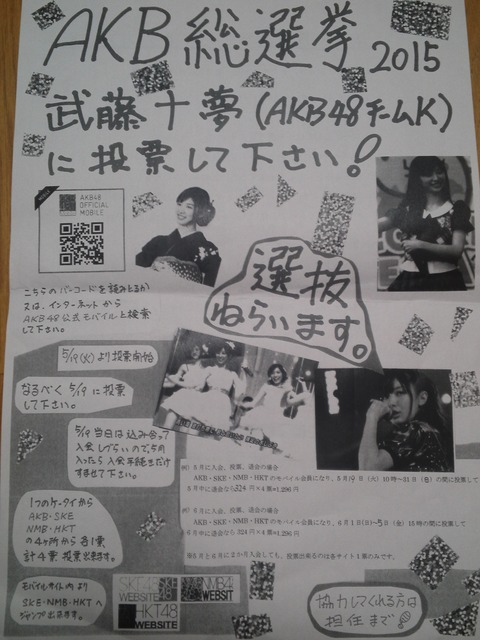 AKB総選挙2015
武藤十夢(AKB48チームK)
に投票して下さい!
AKB48
OFFICIAL
MOBILE
選抜
ねらいます。
こちらのバーコードを読みとるか
又は、インターネットから
AKB48公式モバイルと検索
して下さい。
5/19(火)より投票開始
なるべく5/19に投票
して下さい。
5/19当日は込み合って
入会しづらいので5月
入ったら入会手続きだけ
すませて下さい。
1つのケータイから
AKB・SKE
NMB・HKT
の4ヶ所から各1票
計4票投票出来ます。
モバイルサイト内より
SKE・NMB・HKTへ
ジャンプ出来ます。
例)5月に入会、投票、退会の場合
AKB・SKE・NMB・HKTのモバイル会員になり、5月19日(火)10時~31日(日)の間に投票して
5月中に退会なら324円×4票=1,296円
例)6月に入会、投票、退会の場合
AKB・SKE・NMB・HKTのモバイル会員になり、6月1日(月)~5日(金)15時の間に投票して
6月中に退会なら324円×4票=1,296円
※5月と6月に2か月入会しても、投票出来るのは各サイト1票のみです。
SKE48
WEBSITE
NMB48
WEBSIT
HKT48
WEBSITE
協力してくれる方は
担任まで